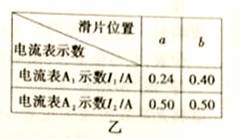 滑片位置
电流表示数
a b
电流表A₁示数I₁/A 0.24 0.40
电流表A₂示数I₂/A 0.50 0.50
乙